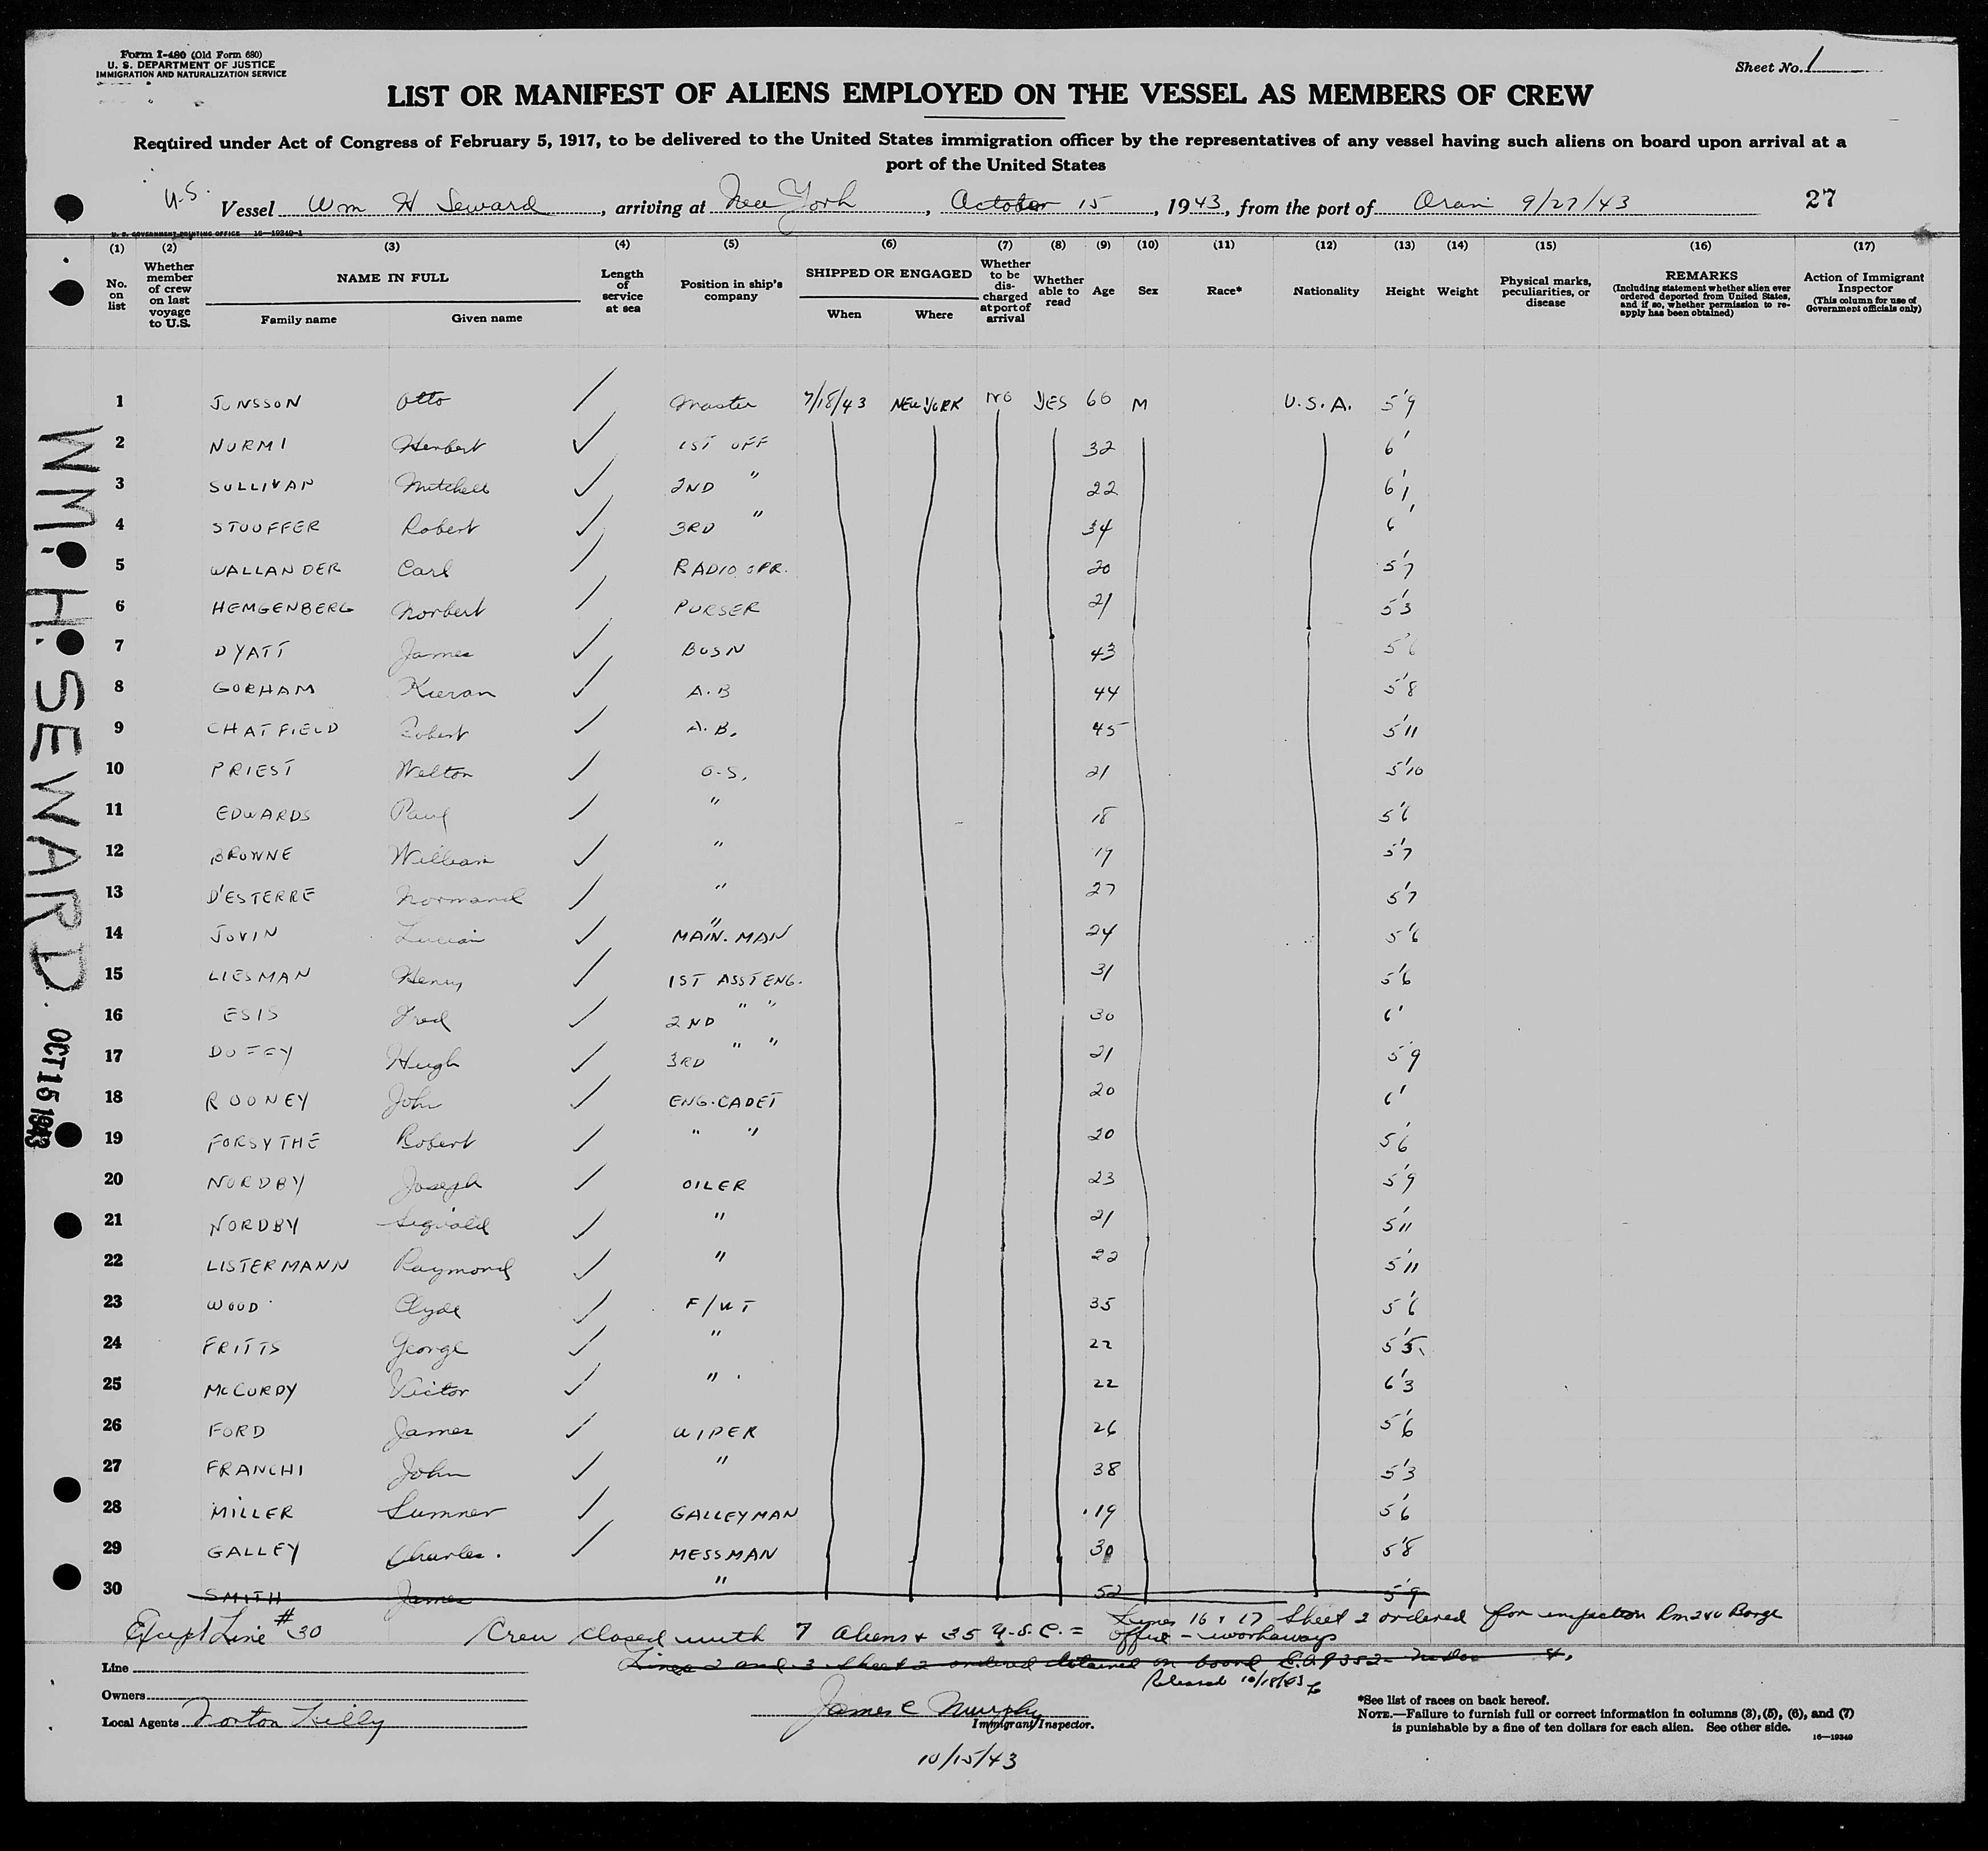 Form I-480 (Old Form 680)
U. S. DEPARTMENT OF JUSTICE
IMMIGRATION AND NATURALIZATION SERVICE
Sheet No. 1
LIST OR MANIFEST OF ALIENS EMPLOYED ON THE VESSEL AS MEMBERS OF CREW
Required under Act of Congress of February 5, 1917, to be delivered to the United States immigration officer by the representatives of any vessel having such aliens on board upon arrival at a
port of the United States
U.S. Vessel Wm H Seward, arriving at New York, October 15, 1943, from the port of Oran 9/27/43 27
U. S. GOVERNMENT PRINTING OFFICE 16—19349-1
(1) (2) (3) (4) (5) (6) (7) (8) (9) (10) (11) (12) (13) (14) (15) (16) (17)
No. on list
Whether member of crew on last voyage to U.S.
NAME IN FULL
Family name Given name
Length of service at sea
Position in ship's company
SHIPPED OR ENGAGED
When Where
Whether to be discharged at port of arrival
Whether able to read
Age
Sex
Race*
Nationality
Height
Weight
Physical marks, peculiarities, or disease
REMARKS
(Including statement whether alien ever ordered deported from United States, and if so, whether permission to re-apply has been obtained)
Action of Immigrant Inspector
(This column for use of Government officials only)
1 JONSSON Otto ✓ Master 7/18/43 NEW YORK NO YES 60 M U.S.A. 5'9
2 NURMI Herbert ✓ 1ST OFF 32 6'
3 SULLIVAN Mitchell ✓ 2ND " 22 6'1
4 STOUFFER Robert ✓ 3RD " 34 6'
5 WALLANDER Carl ✓ RADIO OPR. 20 5'7
6 HEMGENBERG Norbert ✓ PURSER 21 5'3
7 DYATT James ✓ BOSN 43 5'6
8 GORHAM Kieran ✓ A.B 44 5'8
9 CHATFIELD Robert ✓ A.B. 45 5'11
10 PRIEST Welton ✓ O.S. 21 5'10
11 EDWARDS Paul ✓ " 18 5'6
12 BROWNE William ✓ " 19 5'7
13 D'ESTERRE Normand ✓ " 27 5'7
14 JOVIN Lucian ✓ " MAIN. MAN 24 5'6
15 LIESMAN Henry ✓ 1ST ASST ENG. 31 5'6
16 ESIS Fred ✓ 2ND " " 30 6'
17 DUFFY Hugh ✓ 3RD " " 21 5'9
18 ROONEY John ✓ ENG. CADET 20 6'
19 FORSYTHE Robert ✓ " " 20 5'6
20 NORDBY Joseph ✓ OILER 23 5'9
21 NORDBY Sigvald ✓ " 21 5'11
22 LISTERMANN Raymond ✓ " 22 5'11
23 WOOD Clyde ✓ F/WT 35 5'6
24 FRITTS George ✓ " 22 5'5
25 McCURDY Victor ✓ " 22 6'3
26 FORD James ✓ WIPER 26 5'6
27 FRANCHI John ✓ " 38 5'3
28 MILLER Sumner ✓ GALLEYMAN 19 5'6
29 GALLEY Charles. ✓ MESSMAN 30 5'8
30 SMITH James " 52 5'9
Except Line #30 Crew closed with 7 aliens + 35 U.S.C. = Lines 16 & 17 Sheet 2 ordered for inspection Rm 240 Barge
office - workaways
Lines 2 and 3 Sheet 2 ordered detained on board E.O. 9352
Released 10/18/43
Line
Owners
Local Agents Norton Lilly
James C Murphy
Immigrant Inspector.
10/15/43
*See list of races on back hereof.
NOTE.—Failure to furnish full or correct information in columns (3), (5), (6), and (7)
is punishable by a fine of ten dollars for each alien. See other side.
16—19349
WM. H. SEWARD. OCT 15 1943